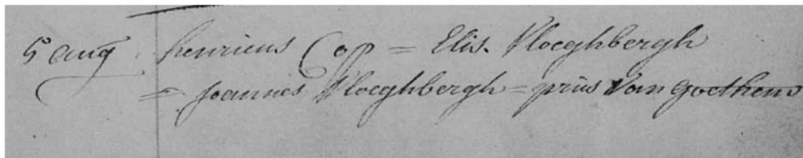 5 aug henricus Cop = Elis. Ploeghbergh
= Joannes Ploeghbergh = prius Van Goethem